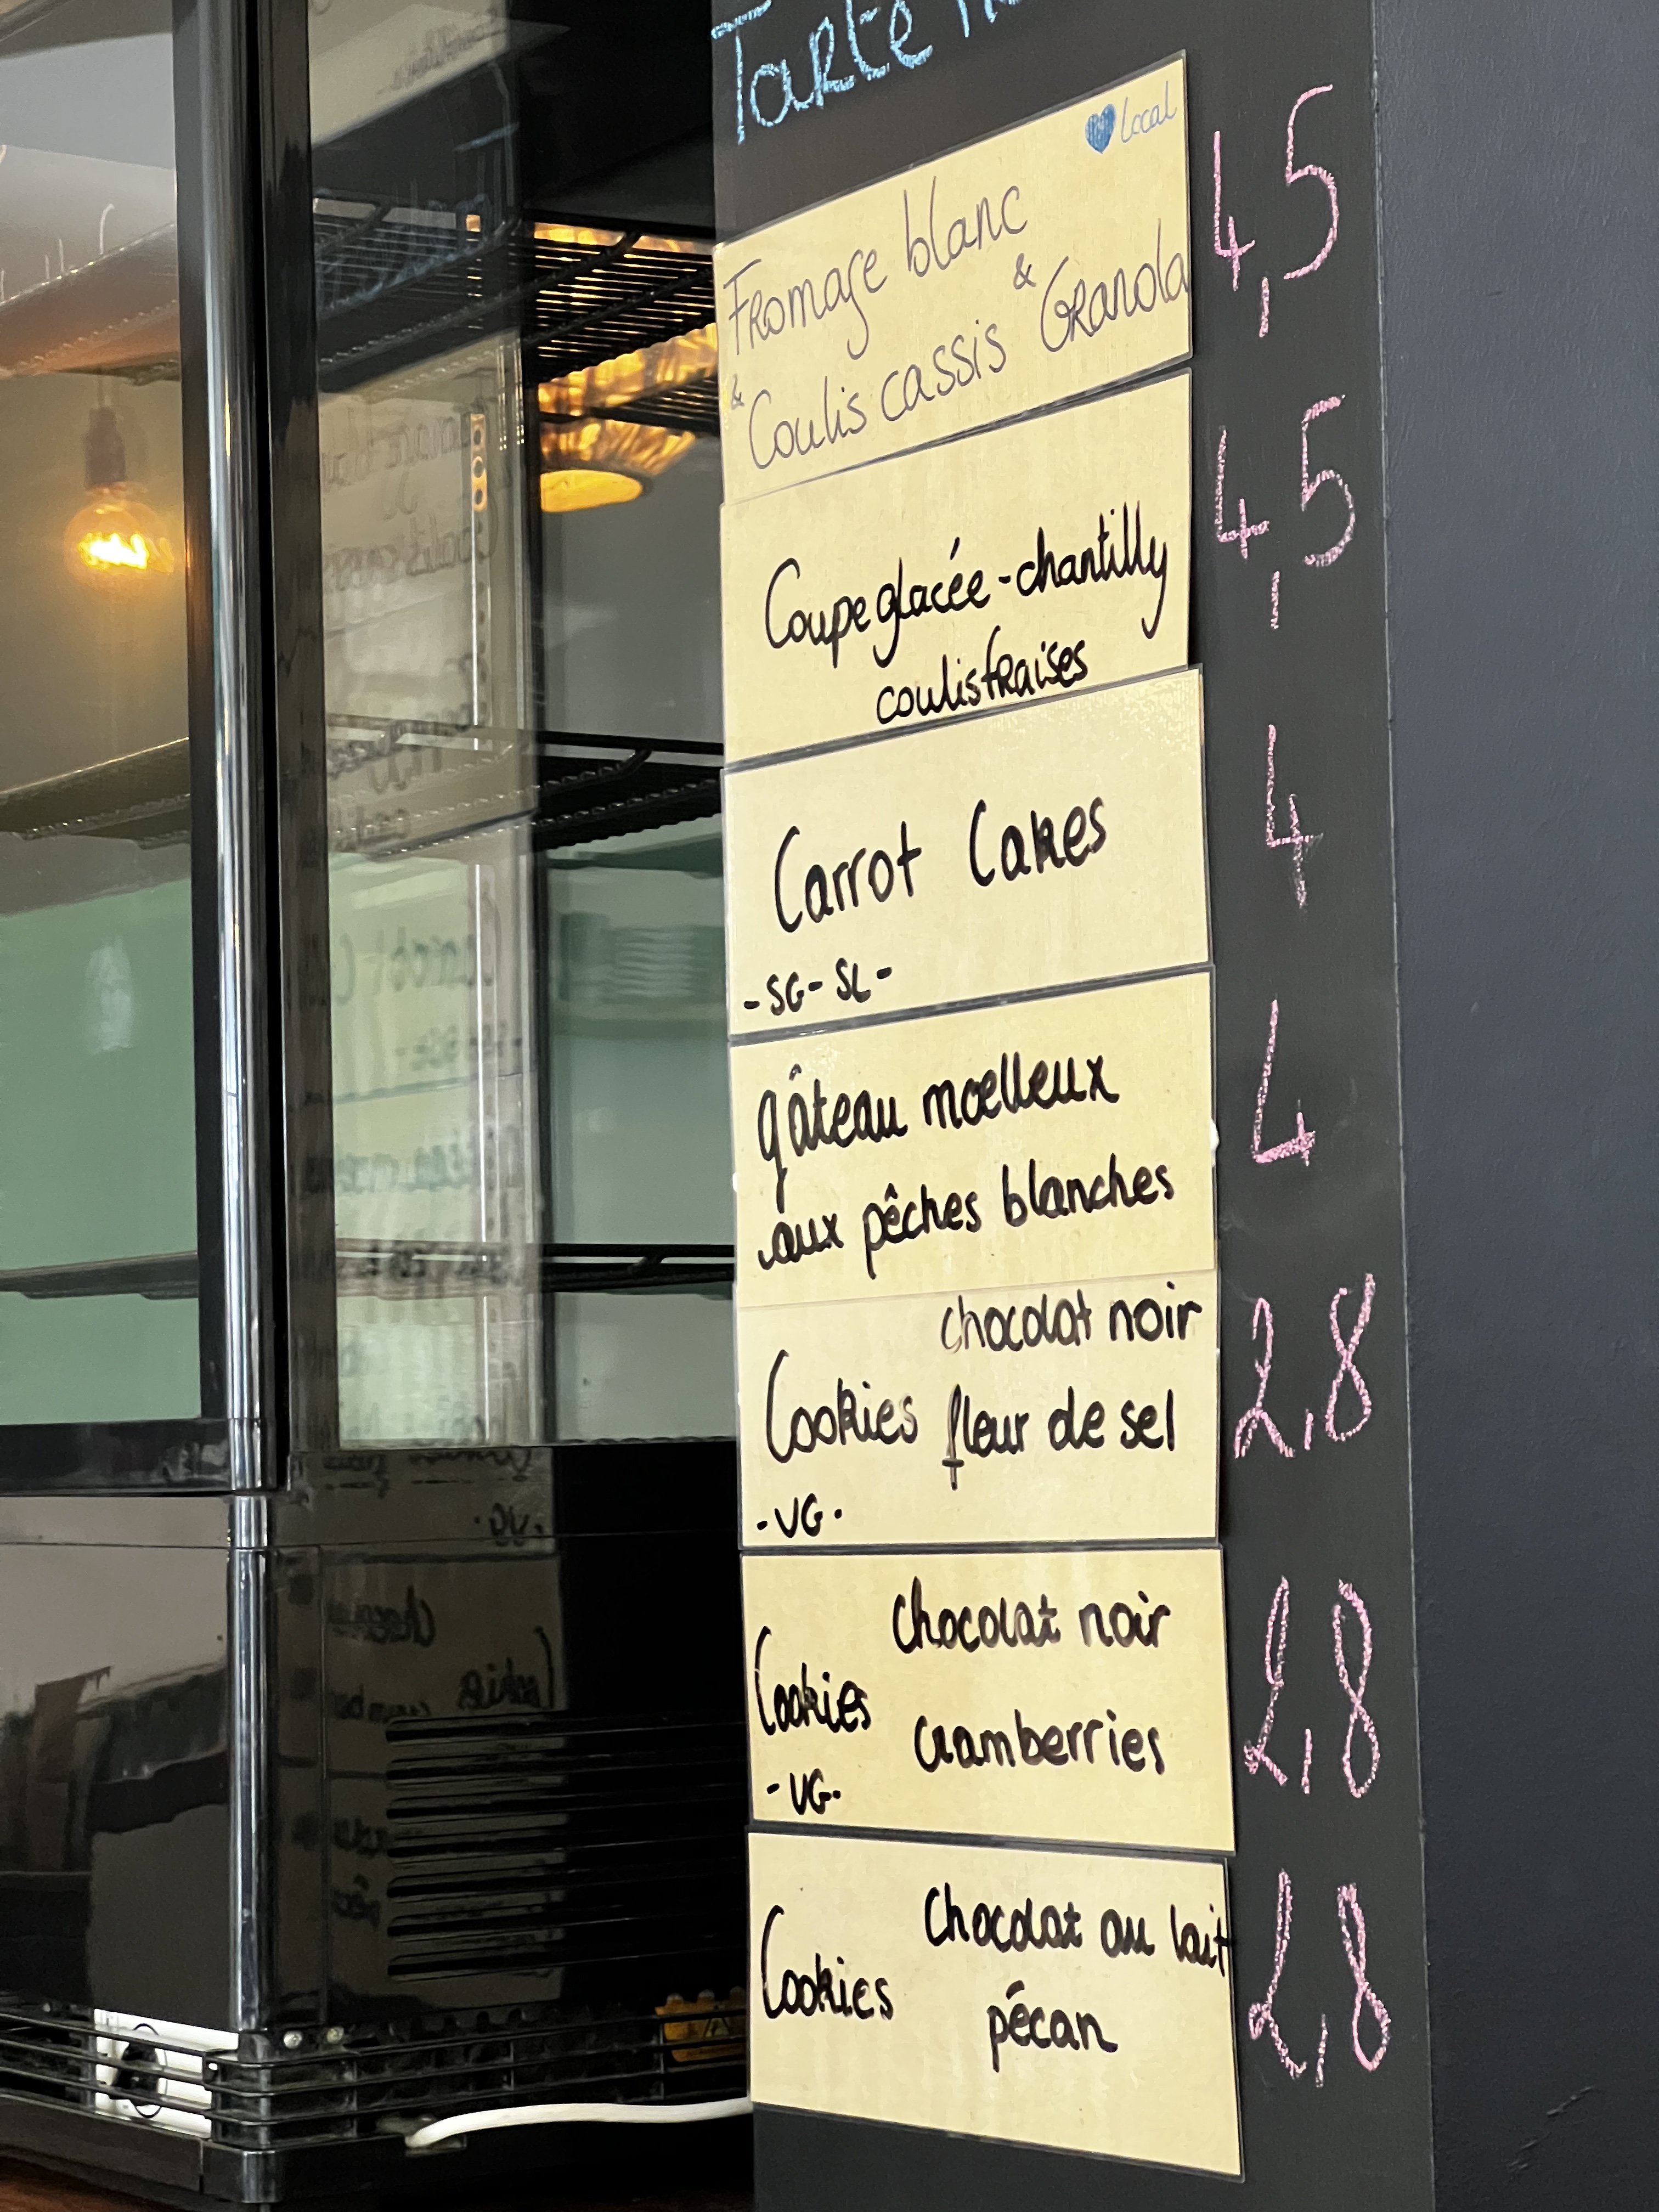 Tarte
Local
4,5
Fromage blanc
& Granola
& Coulis cassis
Coupe glacée - chantilly
4,5
coulis fraises
Carrot Cakes
4
- SG - SL -
gâteau moelleux
4
aux pêches blanches
chocolat noir
Cookies fleur de sel
2,8
- VG -
chocolat noir
Cookies
2,8
cramberries
- VG -
chocolat au lait
Cookies
2,8
pécan